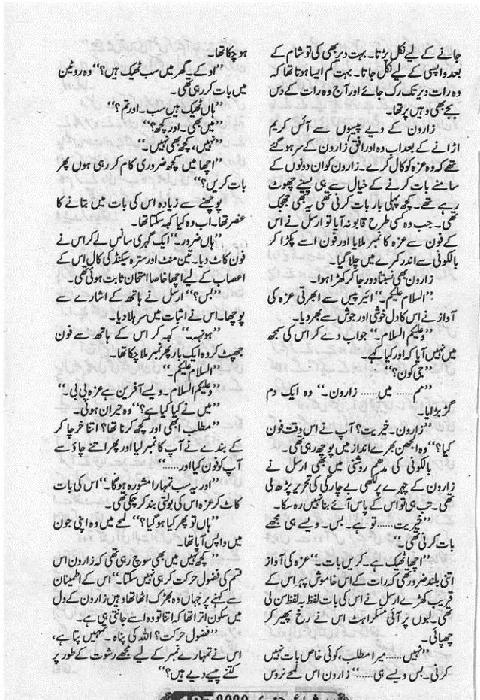 جانے کے لیے نکل پڑتا۔ بہت دیر بھی کی تو شام کے
بعد واپسی کے لیے نکل جاتا۔ بہت کم ایسا ہوتا تھا کہ
وہ رات دیر تک رک جائے اور آج وہ رات کے دس
بجے بھی وہیں پر تھا۔
زارون کے دیے پیسوں سے آئس کریم
اڑانے کے بعد اب وہ اور افق زارون کے سر ہو گئے
تھے کہ وہ عزہ کو کال کرے۔ زارون کو ان دونوں کے
سامنے بات کرنے کے خیال سے ہی پسینے چھوٹ
رہے تھے۔ کچھ پہلی بار بات کرنی تھی یہ بھی جھجک
تھی۔ جب وہ کسی طرح قابو نہ آیا تو ارسل نے اس
کے فون سے عزہ کا نمبر ملایا اور فون اسے پکڑا کر
بالکونی سے اندر کمرے میں چلا گیا۔
زارون بھی نسبتاً دور جا کر کھڑا ہوا۔
”السلام علیکم۔“ ائیر پیس سے ابھرتی عزہ کی
آواز نے اس کا دل خوشی اور جوش سے بھر دیا۔
”وعلیکم السلام۔“ جواب دے کر اس کی سمجھ
میں نہیں آیا کہ اور کیا کہے۔
”جی کون؟“
”مم ...... میں ...... زارون۔“ وہ ایک دم
گڑبڑایا۔
”زارون۔ خیریت؟ آپ نے اس وقت فون
کیا؟“ وہ الجھن بھرے انداز میں پوچھ رہی تھی۔
بالکونی کی مدھم روشنی میں بھی ارسل نے
زارون کے چہرے پر لکھی بے چارگی کی تحریر پڑھ لی
تھی۔ جب ہی تو اس کے پاس آئے بنا نہیں رہ سکا۔
”خیریت ...... تو ہے۔ بس۔ ویسے ہی مجھے
بات کرنی تھی۔“
”اچھا ٹھیک ہے۔ کریں بات۔“ عزہ کی آواز
اتنی بلند ضرور تھی کہ رات کے اس خاموش پہر اس کے
قریب کھڑے ارسل نے اس کی بات لفظ بہ لفظ سن لی
تھی۔ لبوں پر آئی مسکراہٹ اس نے رخ پھیر کر
چھپائی۔
”نہیں ...... میرا مطلب، کوئی خاص بات نہیں
کرنی۔ بس ویسے ہی ......“ زارون اس لمحے نروس
ہو چکا تھا۔
”اوکے۔ گھر میں سب ٹھیک ہیں؟“ وہ روٹین
میں بات کر رہی تھی۔
”ہاں ٹھیک ہیں سب۔ اور تم؟“
”میں بھی۔ اور کچھ؟“
”نہیں، کچھ بھی نہیں۔“
”اچھا میں کچھ ضروری کام کر رہی ہوں پھر
بات کریں؟“
پوچھنے سے زیادہ اس کی بات میں بتانے کا
عنصر تھا۔ اب وہ کیا کہہ سکتا تھا۔
”ہاں ضرور۔“ ایک گہری سانس لے کر اس نے
فون کاٹ دیا۔ تین منٹ اور سترہ سیکنڈ کی کال اس کے
اعصاب کے لیے اچھا خاصا امتحان ثابت ہوئی تھی۔
”بس؟“ ارسل نے ہاتھ کے اشارے سے
پوچھا۔ اس نے اثبات میں سر ہلا دیا۔
”ہونہہ۔“ کہہ کر اس کے ہاتھ سے فون
جھپٹ کر وہ ایک بار پھر نمبر ملا چکا تھا۔
”السلام علیکم۔“
”وعلیکم السلام۔ ویسے آفرین ہے عزہ بی بی۔“
”میں نے کیا کیا ہے؟“ وہ حیران ہوئی۔
”مطلب ابھی اور کچھ کرنا تھا؟ اتنا خرچا کر
کے بندے نے آپ کا نمبر لیا اور پھر اتنے چاؤ سے
آپ کو فون کیا اور ......“
”اور یہ سب تمہارا مشورہ ہوگا۔“ اس کی بات
کاٹ کر عزہ اس کی بولتی بند کر چکی تھی۔
”ہاں تو پھر کیا ہو گیا؟“ لمحے میں وہ اپنی جون
میں واپس آیا تھا۔
”کچھ نہیں میں بھی سوچ رہی تھی کہ زارون اس
قسم کی فضول حرکت کر ہی نہیں سکتا۔“ اس کے اطمینان
سے کہنے پر جہاں وہ بھڑک اٹھا تھا وہیں زارون کے دل
میں سکون اترا تھا کہ اتنا تو وہ اسے جانتی ہی ہے۔
”فضول حرکت؟ اللہ کی پناہ۔ تمہیں پتا ہے،
اس نے تمہارے نمبر کے لیے مجھے رشوت کے طور پر
کتنے پیسے دیے ہیں؟“